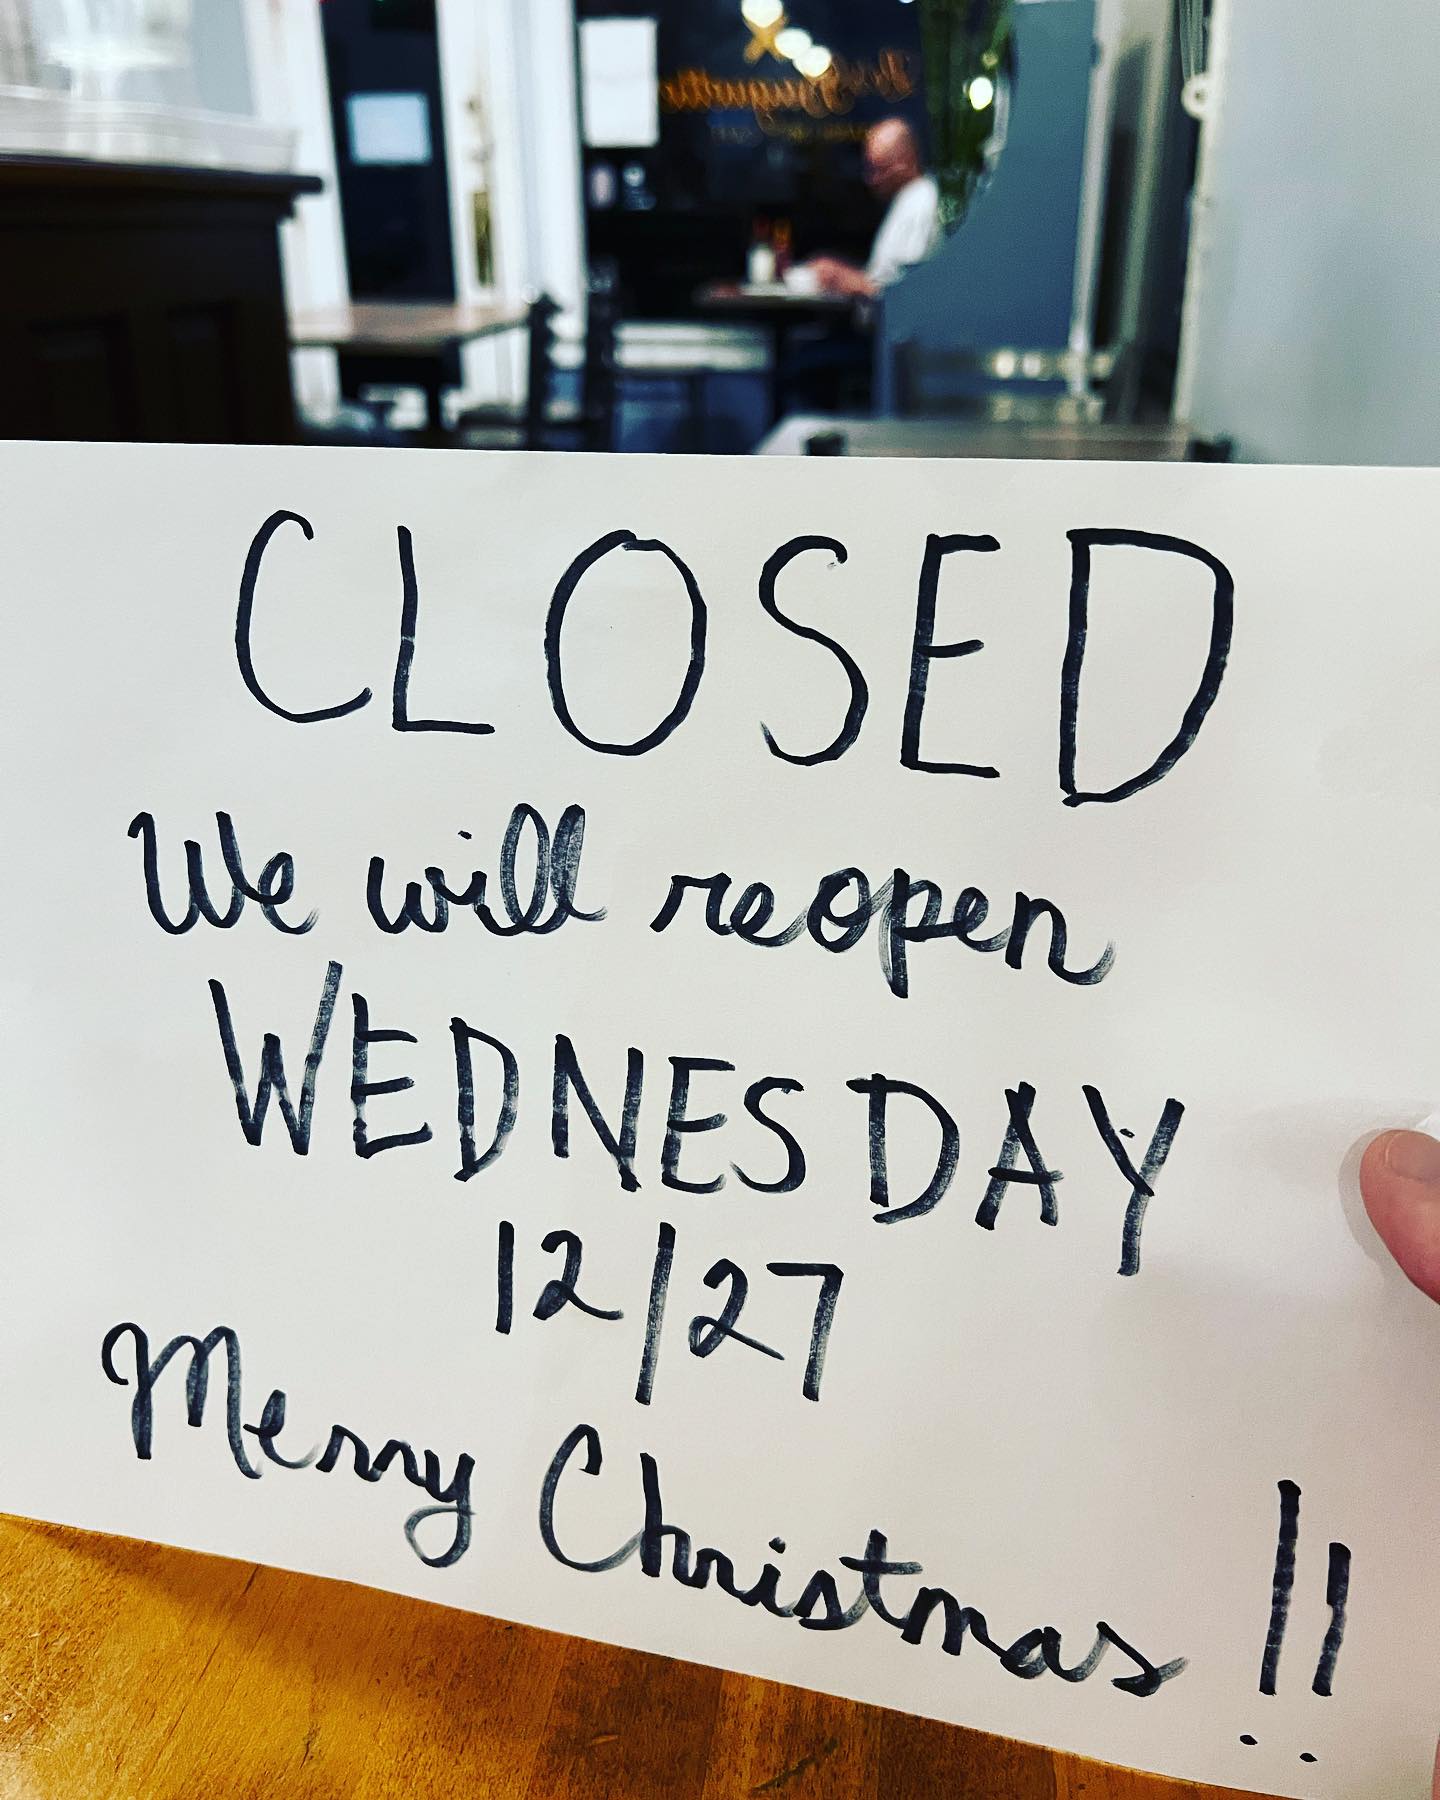 CLOSED
We will reopen
WEDNESDAY
12/27
Merry Christmas !!